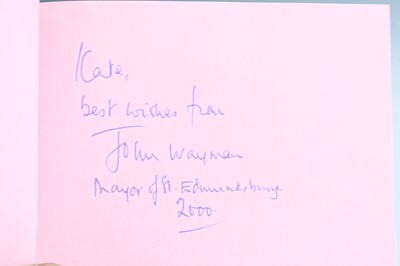 Kate,
best wishes from
John Wayman
Mayor of St. Edmundsbury
2000.